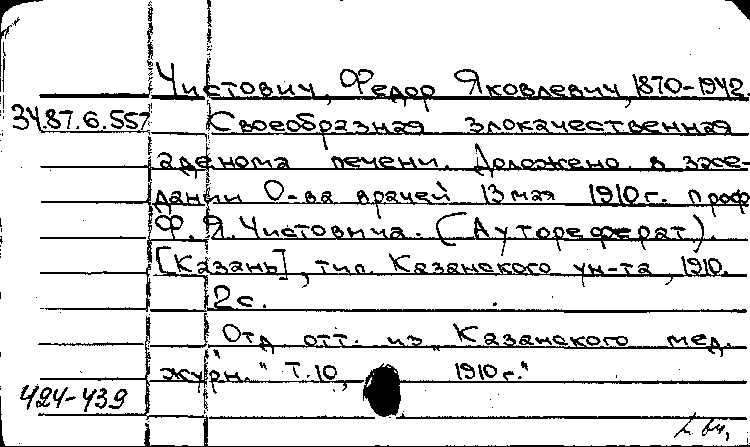 Чистович, Федор Яковлевич, 1870-1942.
3487.6.557 Своеобразная злокачественная
аденома печени. Доложено в засе-
дании О-ва врачей 13 мая 1910 г. проф
Ф.Я. Чистовича. (Аутореферат).
[Казань], тип. Казанского ун-та, 1910.
2 с.
Отд отт. из "Казанского мед.
журн." Т. 10, 1910 г."
424-439